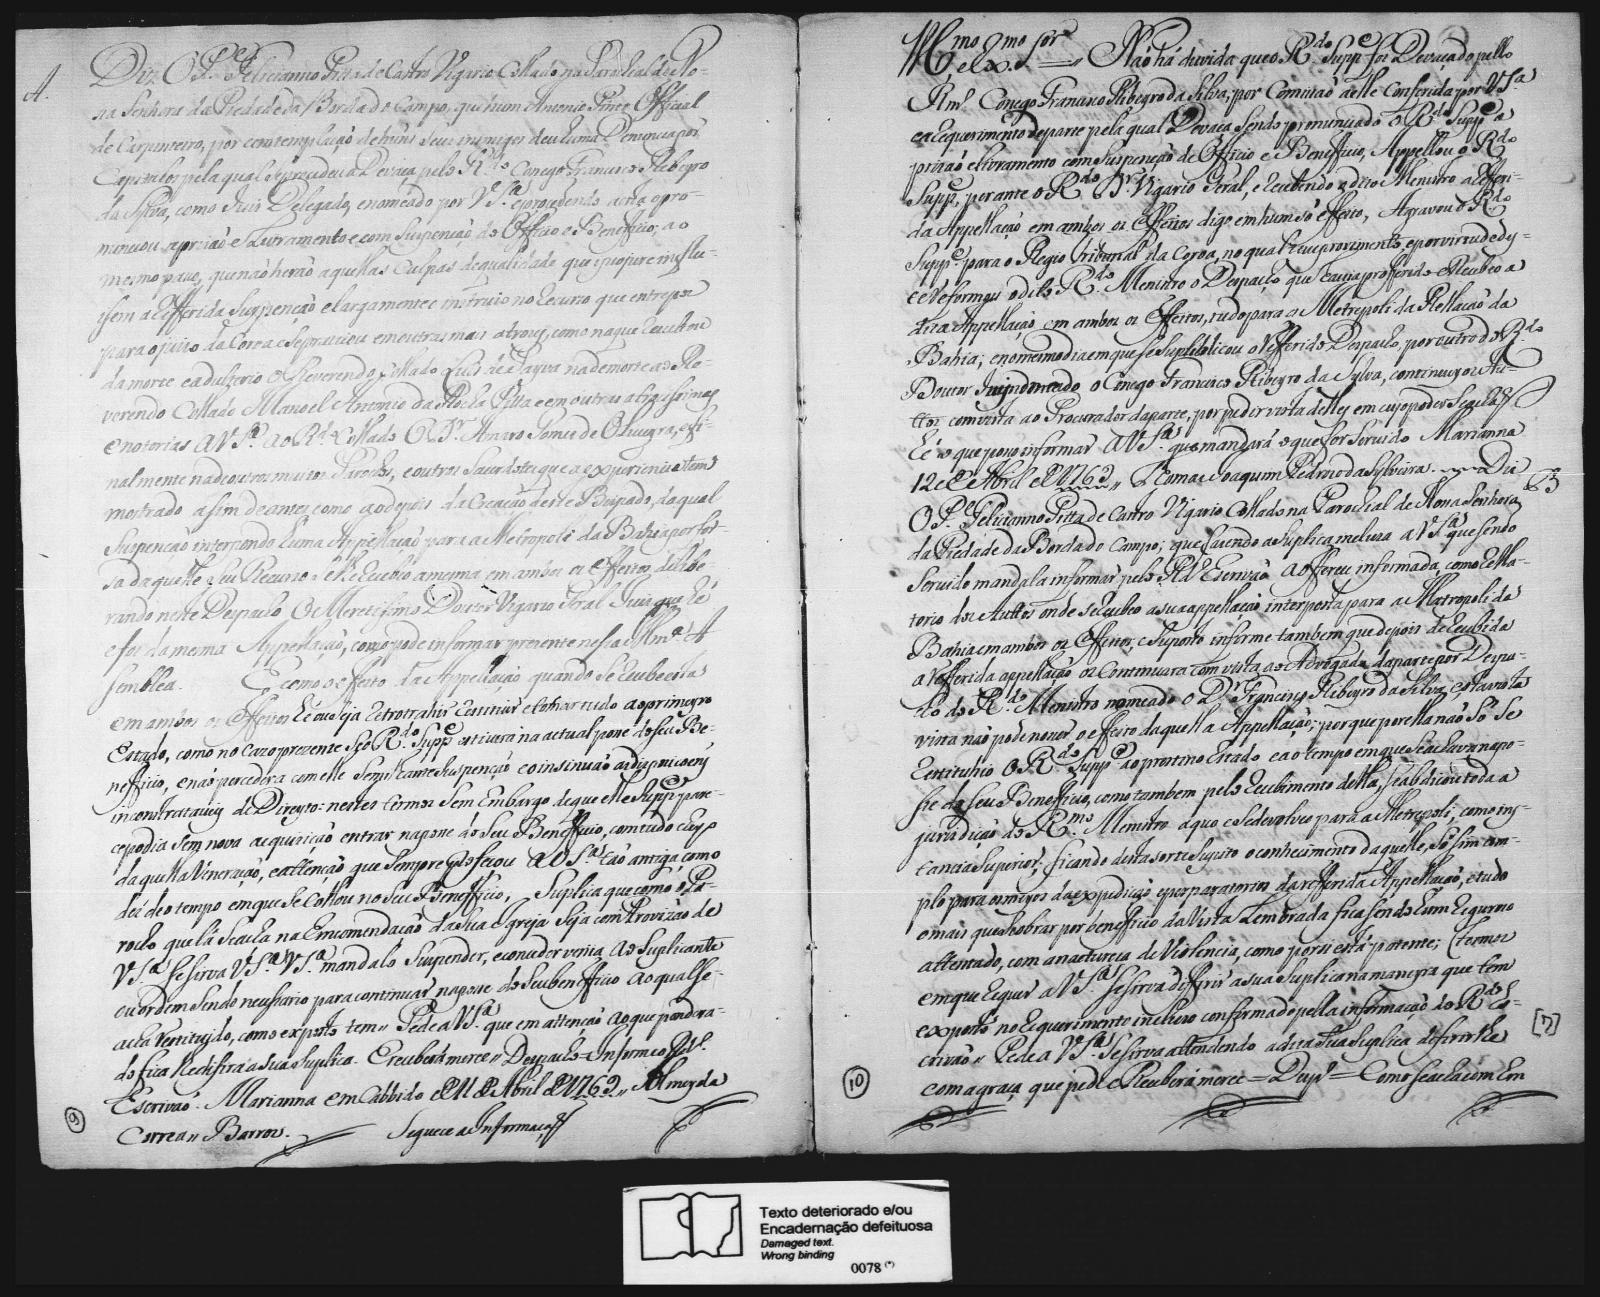 A.
Diz O P.e Felicianno Pitta de Castro Vigario Collado na Parochial de No-
na Senhora da Piedade da Borda do Campo, que hum Antonio Pinto Official
de Carpinteiro, por contemplação de huns seus inimigos deu huma Denuncia por
Capitulos pela qual se procedeu a Devaça pelo R.do Conego Francisco Ribeyro
da Sylva, como Juis Delegado, e nomeado por V.Sª. e procedendo a ella o pro-
nunciou a prizão e Livramento e com Suspenção do Officio e Beneficio, ao
mesmo passo, que não herão aquellas Culpas de qualidade que
sem a refferida Suspenção e largamente instruio no Recurso que entrepos
para o juizo da Coroa e Se praticou em outras mais atrozes, como
da morte e adulterio o Reverendo Collado Luis na de morte ao Re-
verendo Collado Manoel Antonio da Rocha Pitta e em outras
e notorias a V Sª ao R.do Collado O D.r Amaro Gomes de Oliveyra, e fi-
nalmente na de outros muitos Parochos, e outros Sacerdotes que a experiencia tem
mostrado assim de antes como ao depois da Creação deste Bispado, da qual
Suspenção interpondo huma Appellação para a Metropoli da Bahia por for-
sa daquelle Seu Recurso Se lhe Recebeo a mesma em ambos os Effeitos delibe-
rando neste Despacho O Meretissimo Doutor Vigario Geral Juis que hé
e foi da mesma Appellação, como pode informar prezente nessa Illm.ª A
semblea. E como o effeito da Appellação quando Se Recebe esta
em ambos os Effeitos hé ou seja Retrotrahir Restituir e tornar tudo ao primeyro
Estado, como no cazo prezente Se o R.do Supp.e estivera na actual posse do Seu Be-
nefficio, e não procedera com elle Semilhante Suspenção e o insinuão as dispozicoens
incontrastaveis de Direyto: nestes termos Sem Embargo de que elle Supp.e pare-
ce podia Sem nova acquizição entrar na posse do Seu Beneffiçio, comtudo
daquella Veneração, e attenção que Sempre professou a V Sª tão antiga, como
dei de o tempo em que Se Collou no Seu Benefficio, Suplica que como o Pa-
rocho que lá Se acha na Encomendação da Sua Igreja Seja com Provizão de
V Sª Se sirva V Sª. V Sª. mandalo Suspender, e conceder venia ao Suplicante
ou ordem Sendo necessario para continuar na posse do Seu benefficio ao qual Se
acha restituido, como exposto tem,, Pede a V Sª. que em attenção ao que pondera-
do fica lhe difira a Sua Suplica. E receberá merce,, Despacho = Informe o R.do
Escrivão. Marianna em Cabbido e 11 de Abril de 1762,, Almeyda
Correa,, Barros. Seguece a Informação
9
Ill.mo e Ex.mo Snr. = Não há duvida que o R.do Supp.e foi Devaçado pello
R.mo Conego Francisco Ribeyro da Silva, por Comissão a elle Conferida por V Sª.
e a requerimento de parte pela qual Devaça Sendo pronunciado o R.do Supp.e a
prizão e livramento com Suspenção de Officio e Benefficio, Appellou o R.do
Supp.e perante o R.do D.r Vigario Geral, e recebendo o dito Menistro a reffer-
da Appellação em ambos os Effeitos digo em hum só effeito, Agravou o R.do
Supp.e para o Regio tribunal da Coroa, no qual teve provimento, e por virtude dy-
ce Reformou o dito R.do Menistro o Despaçho que havia profferido e Recebeo a
dita Appellação em ambos os Effeitos, tudo para a Metropoli da Rellação da
Bahia; e no mesmo dia em que se Suplublicou o refferido Despacho, por outro do R.do
Doutor Juis nomeado o Conego Francisco Ribeyro da Sylva, continuou Au-
ttos com vista ao Procurador da parte, por pedir vista delles em cujo poder Se acha
hé o que posso informar a V Sª. que mandará o que for Servido Marianna
12 de Abril de 1762,, Thomas Joaquim Pedrozo da Sylveira. Diz
63
O P.e Felicianno Pitta de Castro Vigario Collado na Parochial de Nossa Senhora
da Piedade da Borda do Campo; que fazendo a Suplica incluza a V Sª. que Sendo
Servido mandala informar pelo R.do Escrivão a offerece informada, como Rella-
torio dos Auttos onde Se recebeo a sua appellação interposta para a Metropoli da
Bahia em ambos os Effeitos, e Suposto informe tambem que depois de Recebida
a refferida appellação os Continuara com vista ao Advogado da parte por Despa-
cho do R.do Menistro nomeado O D.r Francisco Ribeyro da Silva, esta nota
vista não pode nover o effeito daquella Appellação; porque por ella não Só Se
Restituhio O R.do Supp.e ao proximo Estado e ao tempo em que Se achava na po-
se do Seu Benefficio, como tambem pelo Recebimento della, Se abdicou toda a
jurisdição do R.mo Menistro a quo e Se devolveo para a Metropoli, como ins-
tancia Superior; ficando desta sorte Sugeito o conhecimento daquelle, Só Sim com-
pto para os meyos da expedição e preparatorios da refferida Appellação, e tudo
o mais que Se obrar por beneffiçio da Vista Lembrada fica Sendo hum Requerimento
attentado, com a natureza de Violencia, como por si está patente; termos
em que Requer a V Sª. Se sirva differir a sua Suplica na maneyra que tem
exposto no Requerimento incluzo conformado pella informação do R.do Es-
crivão,, Pede a V Sª. Se sirva attendendo a dita Sua Suplica defirirlhe
com a graça que pede e Receberá merce = Desp.º = Como Se acha com Em
[7]
10
Texto deteriorado e/ou
Encadernação defeituosa
Damaged text.
Wrong binding
0078 (*)